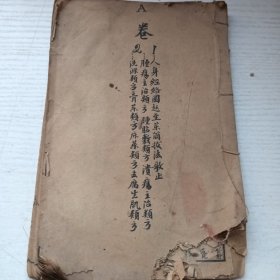 A
卷
人身經絡圖起至
腫瘍主治類方 腫敷類方 潰瘍主治類方
洗滌類方膏藥類方麻藥類方去腐生肌類方